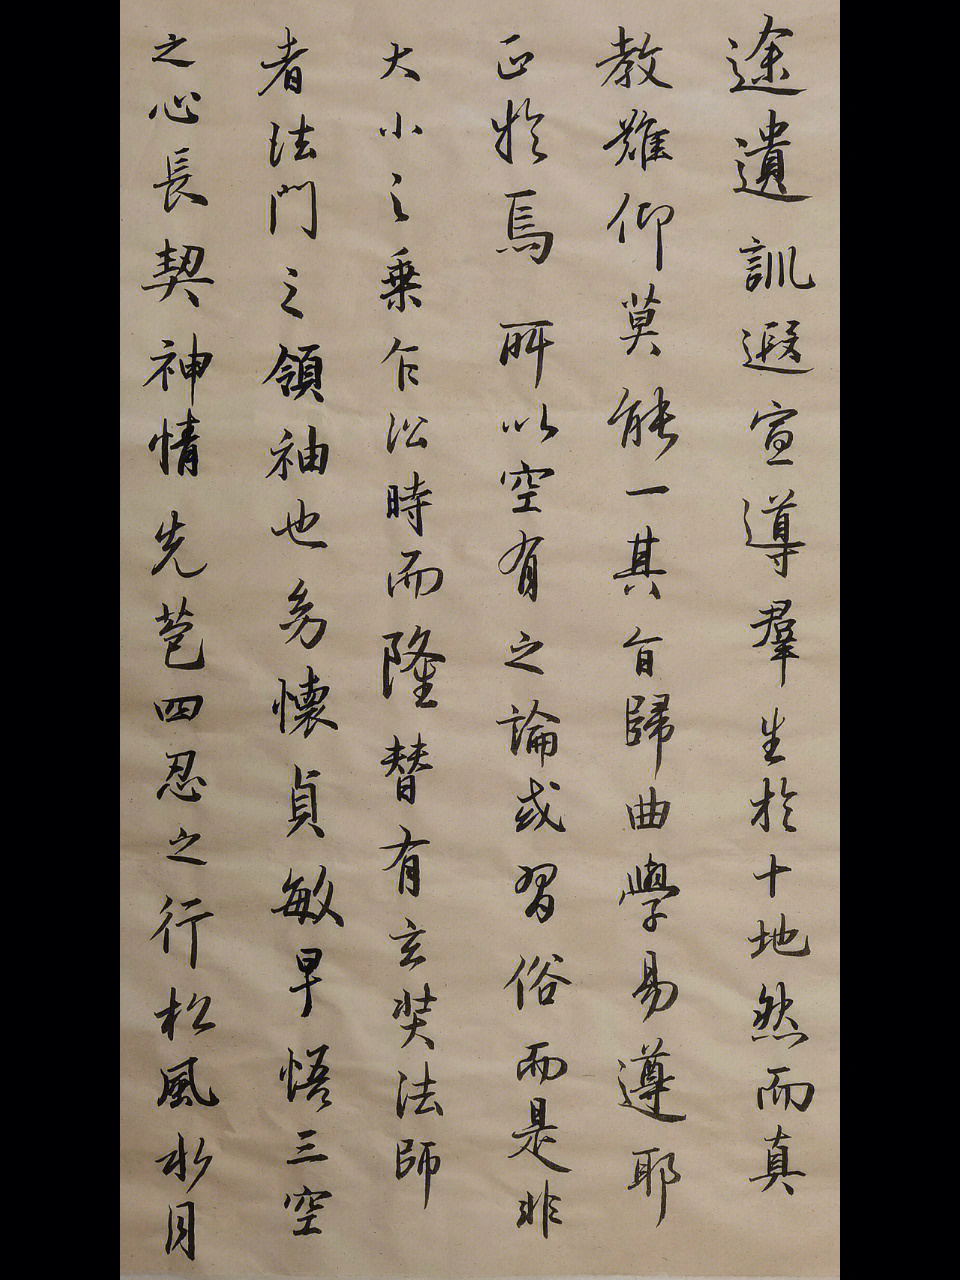 途遺訓遐宣導羣生於十地然而真
教難仰莫能一其旨歸曲學易遵耶
正於焉所以空有之論或習俗而是非
大小之乗乍沿時而隆替有玄奘法師
者法門之領袖也幼懷貞敏早悟三空
之心長契神情先苞四忍之行松風水月